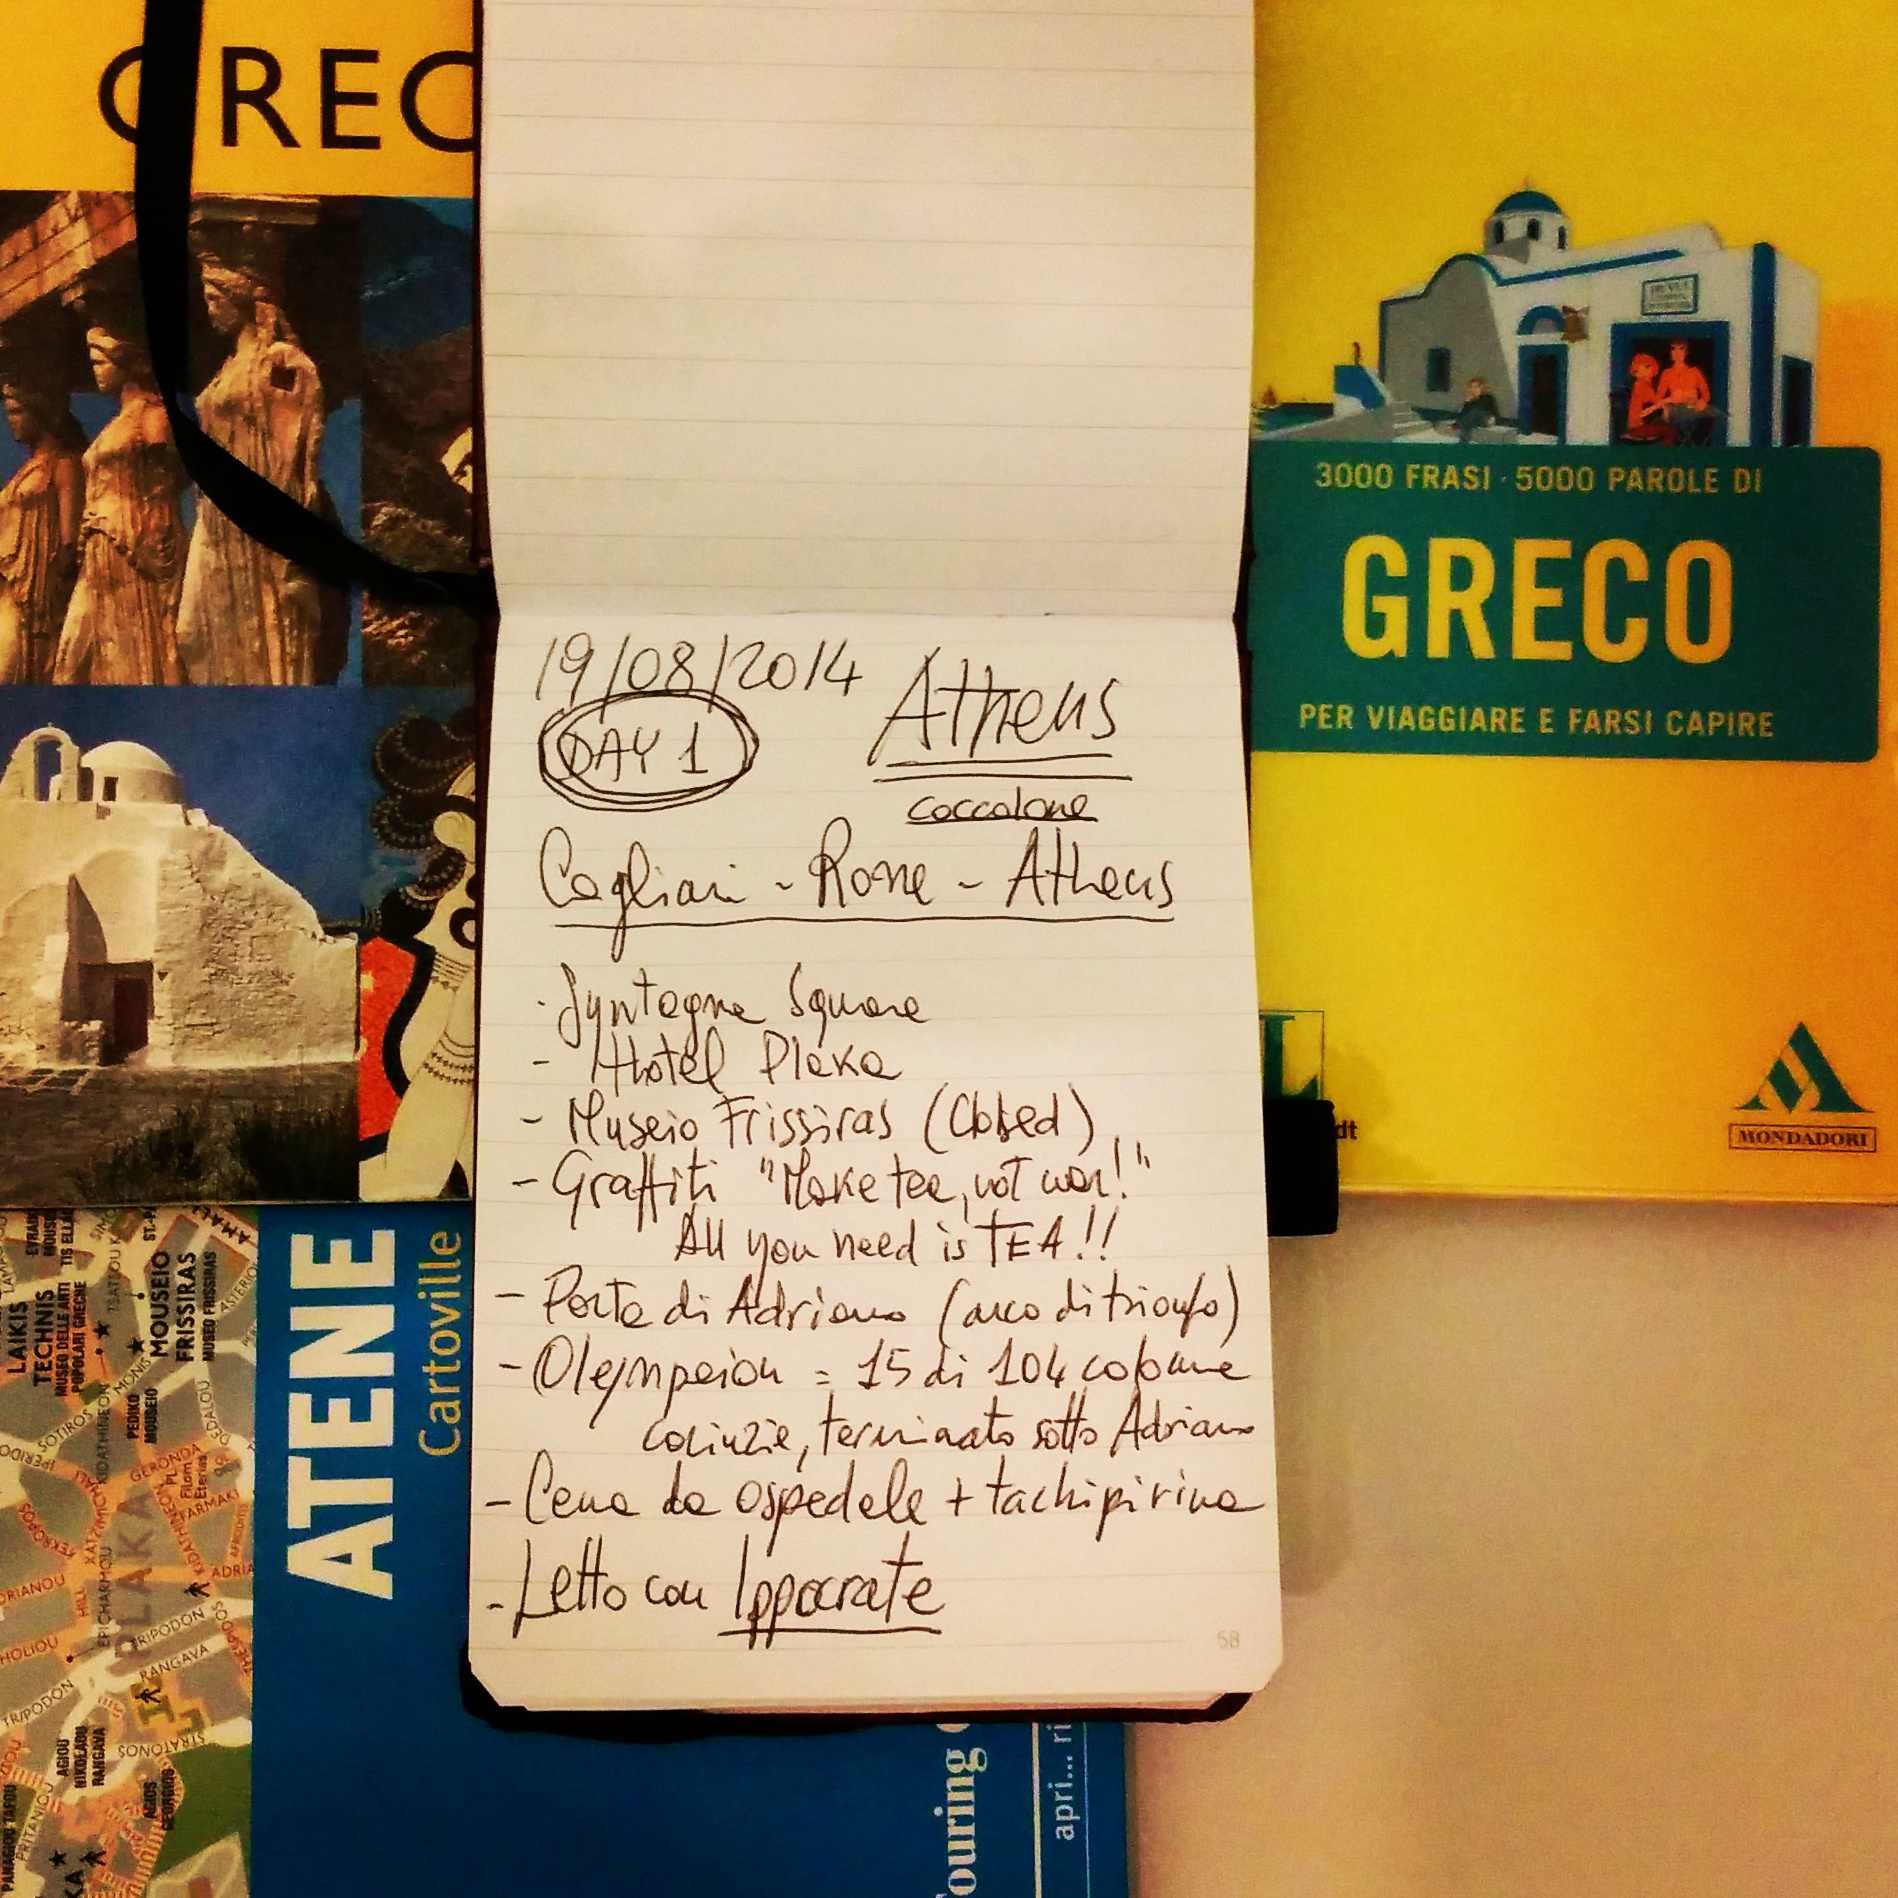 GREC
3000 FRASI · 5000 PAROLE DI
GRECO
PER VIAGGIARE E FARSI CAPIRE
MONDADORI
dt
19/08/2014
DAY 1
Athens
coccolone
Cagliari - Rome - Athens
- Syntagma Square
- Hotel Plaka
- Museio Frissiras (Closed)
- Graffiti "Make tea, not war!"
All you need is TEA!!
- Porta di Adriano (arco di trionfo)
- Olympeion = 15 di 104 colonne
corinzie, terminato sotto Adriano
- Cena da ospedale + tachipirina
- Letto con Ippocrate
58
ATENE
Cartoville
Touring
apri... ri
LAIKIS
TECHNIS
MUSEO DELLE ARTI
POPOLARI GRECHE
MOUSEIO
FRISSIRAS
MUSEO FRISSIRAS
PEDIKO
MOUSEIO
SOTIROS
MONIS
DEDALOU
GERONDA
FARMAKI
PLAKA
KEKROPOS
HILL
EPICHARMOU
TRIPODON
THESPIDOS
RANGAVA
TRIPODON
STRATONOS
AGIOU
NIKOLAOU
RANGAVA
AGIOS
GEORGIOS
PRITANIOU